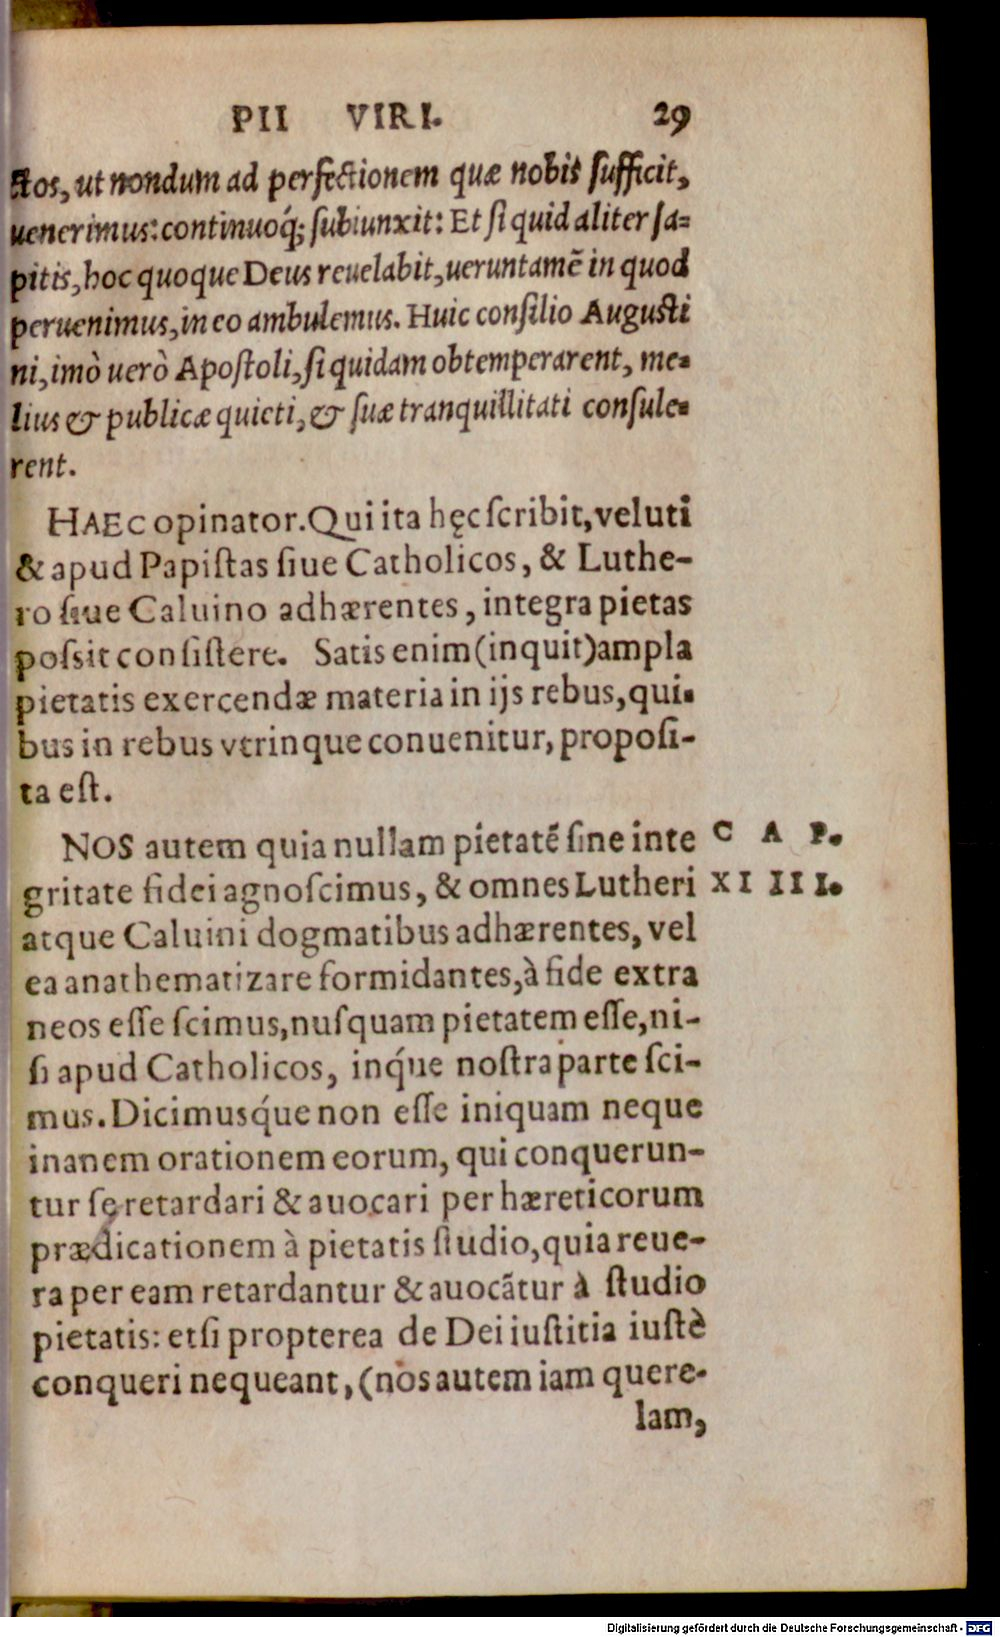 PII VIRI. 29
ctos, ut nondum ad perfectionem quæ nobis sufficit,
uenerimus: continuoq́; subiunxit: Et si quid aliter sa=
pitis, hoc quoque Deus reuelabit, ueruntamẽ in quod
peruenimus, in eo ambulemus. Huic consilio Augusti
ni, imò uerò Apostoli, si quidam obtemperarent, me=
lius & publicæ quieti, & suæ tranquillitati consule=
rent.
HAEC opinator. Qui ita hęc scribit, veluti
& apud Papistas siue Catholicos, & Luthe-
ro siue Caluino adhærentes, integra pietas
possit consistere. Satis enim (inquit) ampla
pietatis exercendæ materia in ijs rebus, qui-
bus in rebus vtrinque conuenitur, proposi-
ta est.
NOS autem quia nullam pietatẽ sine inte C A P.
gritate fidei agnoscimus, & omnes Lutheri XIIII.
atque Caluini dogmatibus adhærentes, vel
ea anathematizare formidantes, à fide extra
neos esse scimus, nusquam pietatem esse, ni-
si apud Catholicos, inq́ue nostra parte sci-
mus. Dicimusq́ue non esse iniquam neque
inanem orationem eorum, qui conquerun-
tur se retardari & auocari per hæreticorum
prædicationem à pietatis studio, quia reue-
ra per eam retardantur & auocãtur à studio
pietatis: etsi propterea de Dei iustitia iustè
conqueri nequeant, (nos autem iam quere-
lam,
Digitalisierung gefördert durch die Deutsche Forschungsgemeinschaft - DFG